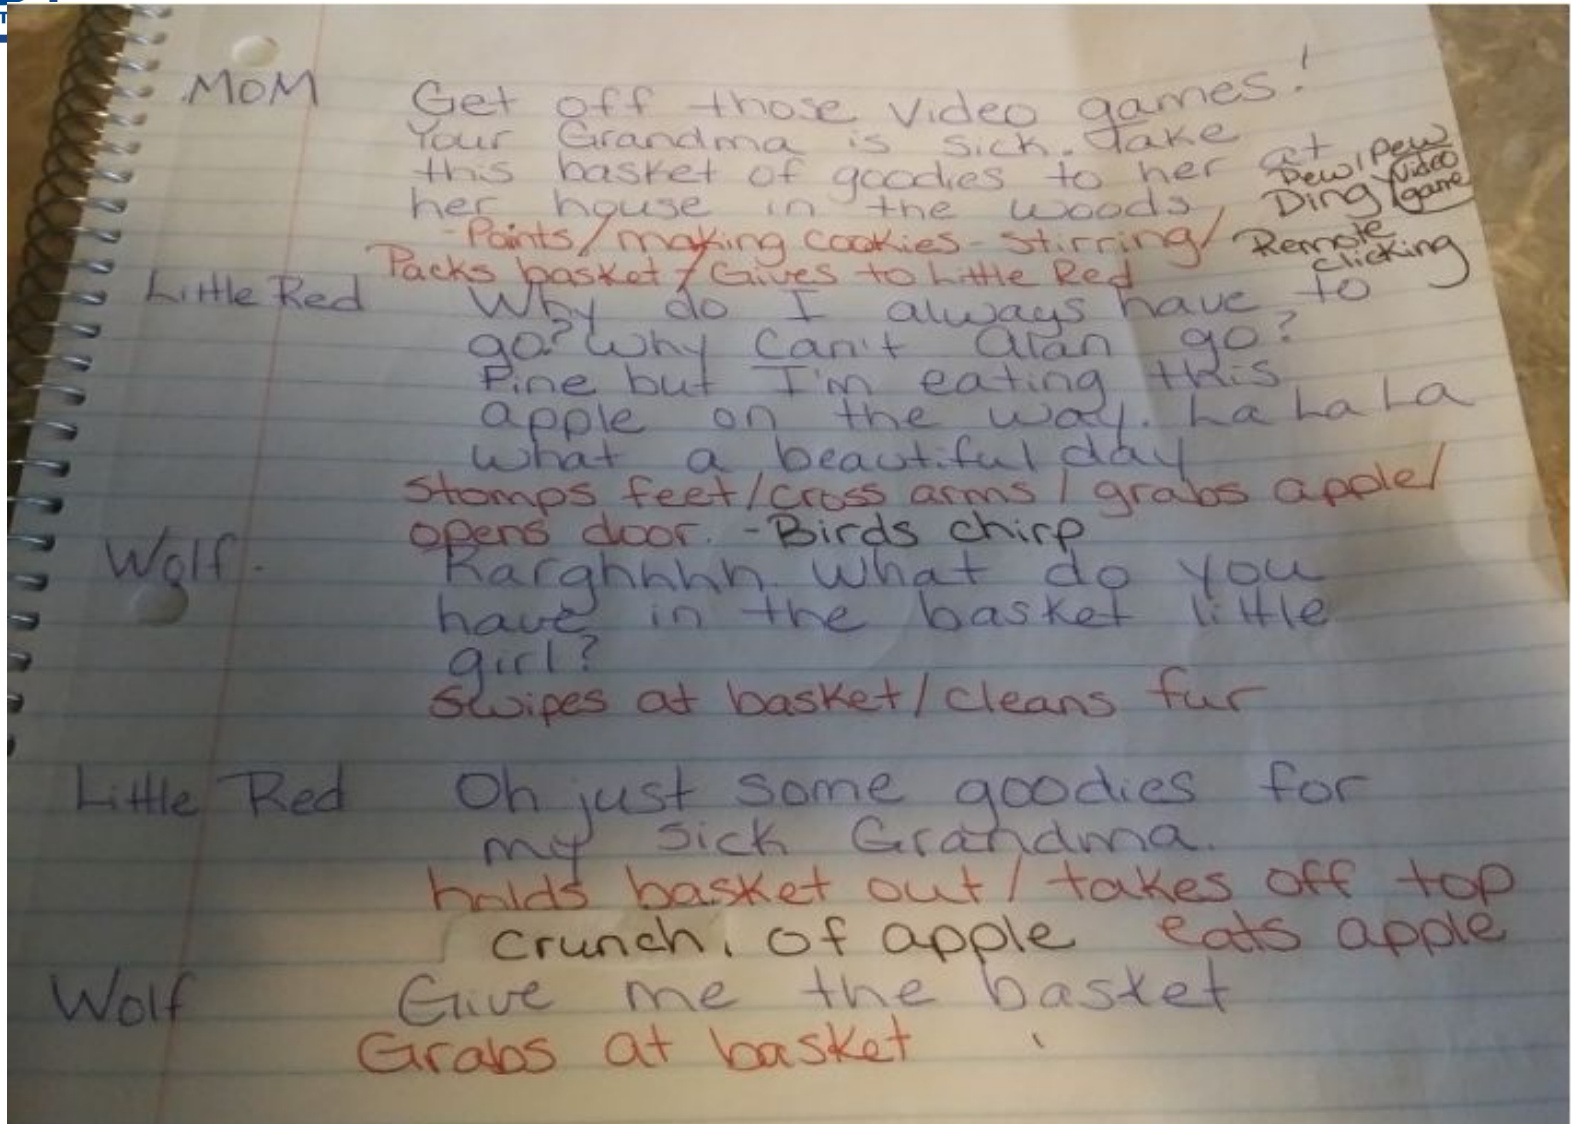 MOM Get off those Video games!
Your Grandma is sick. Take
this basket of goodies to her at
her house in the woods,
Pew/Pew
Ding Video game
Remote
clicking
-Points/making cookies-stirring/
Packs basket/Gives to Little Red
Little Red Why do I always have to
go? Why can't Alan go?
Fine but I'm eating this
apple on the way. La La La
What a beautiful day
Stomps feet/cross arms/grabs apple/
opens door. -Birds chirp
Wolf. Rarghhhh What do you
have in the basket little
girl?
Swipes at basket/cleans fur
Little Red Oh just some goodies for
my sick Grandma.
holds basket out/takes off top
crunch, of apple eats apple
Wolf Give me the basket
Grabs at basket